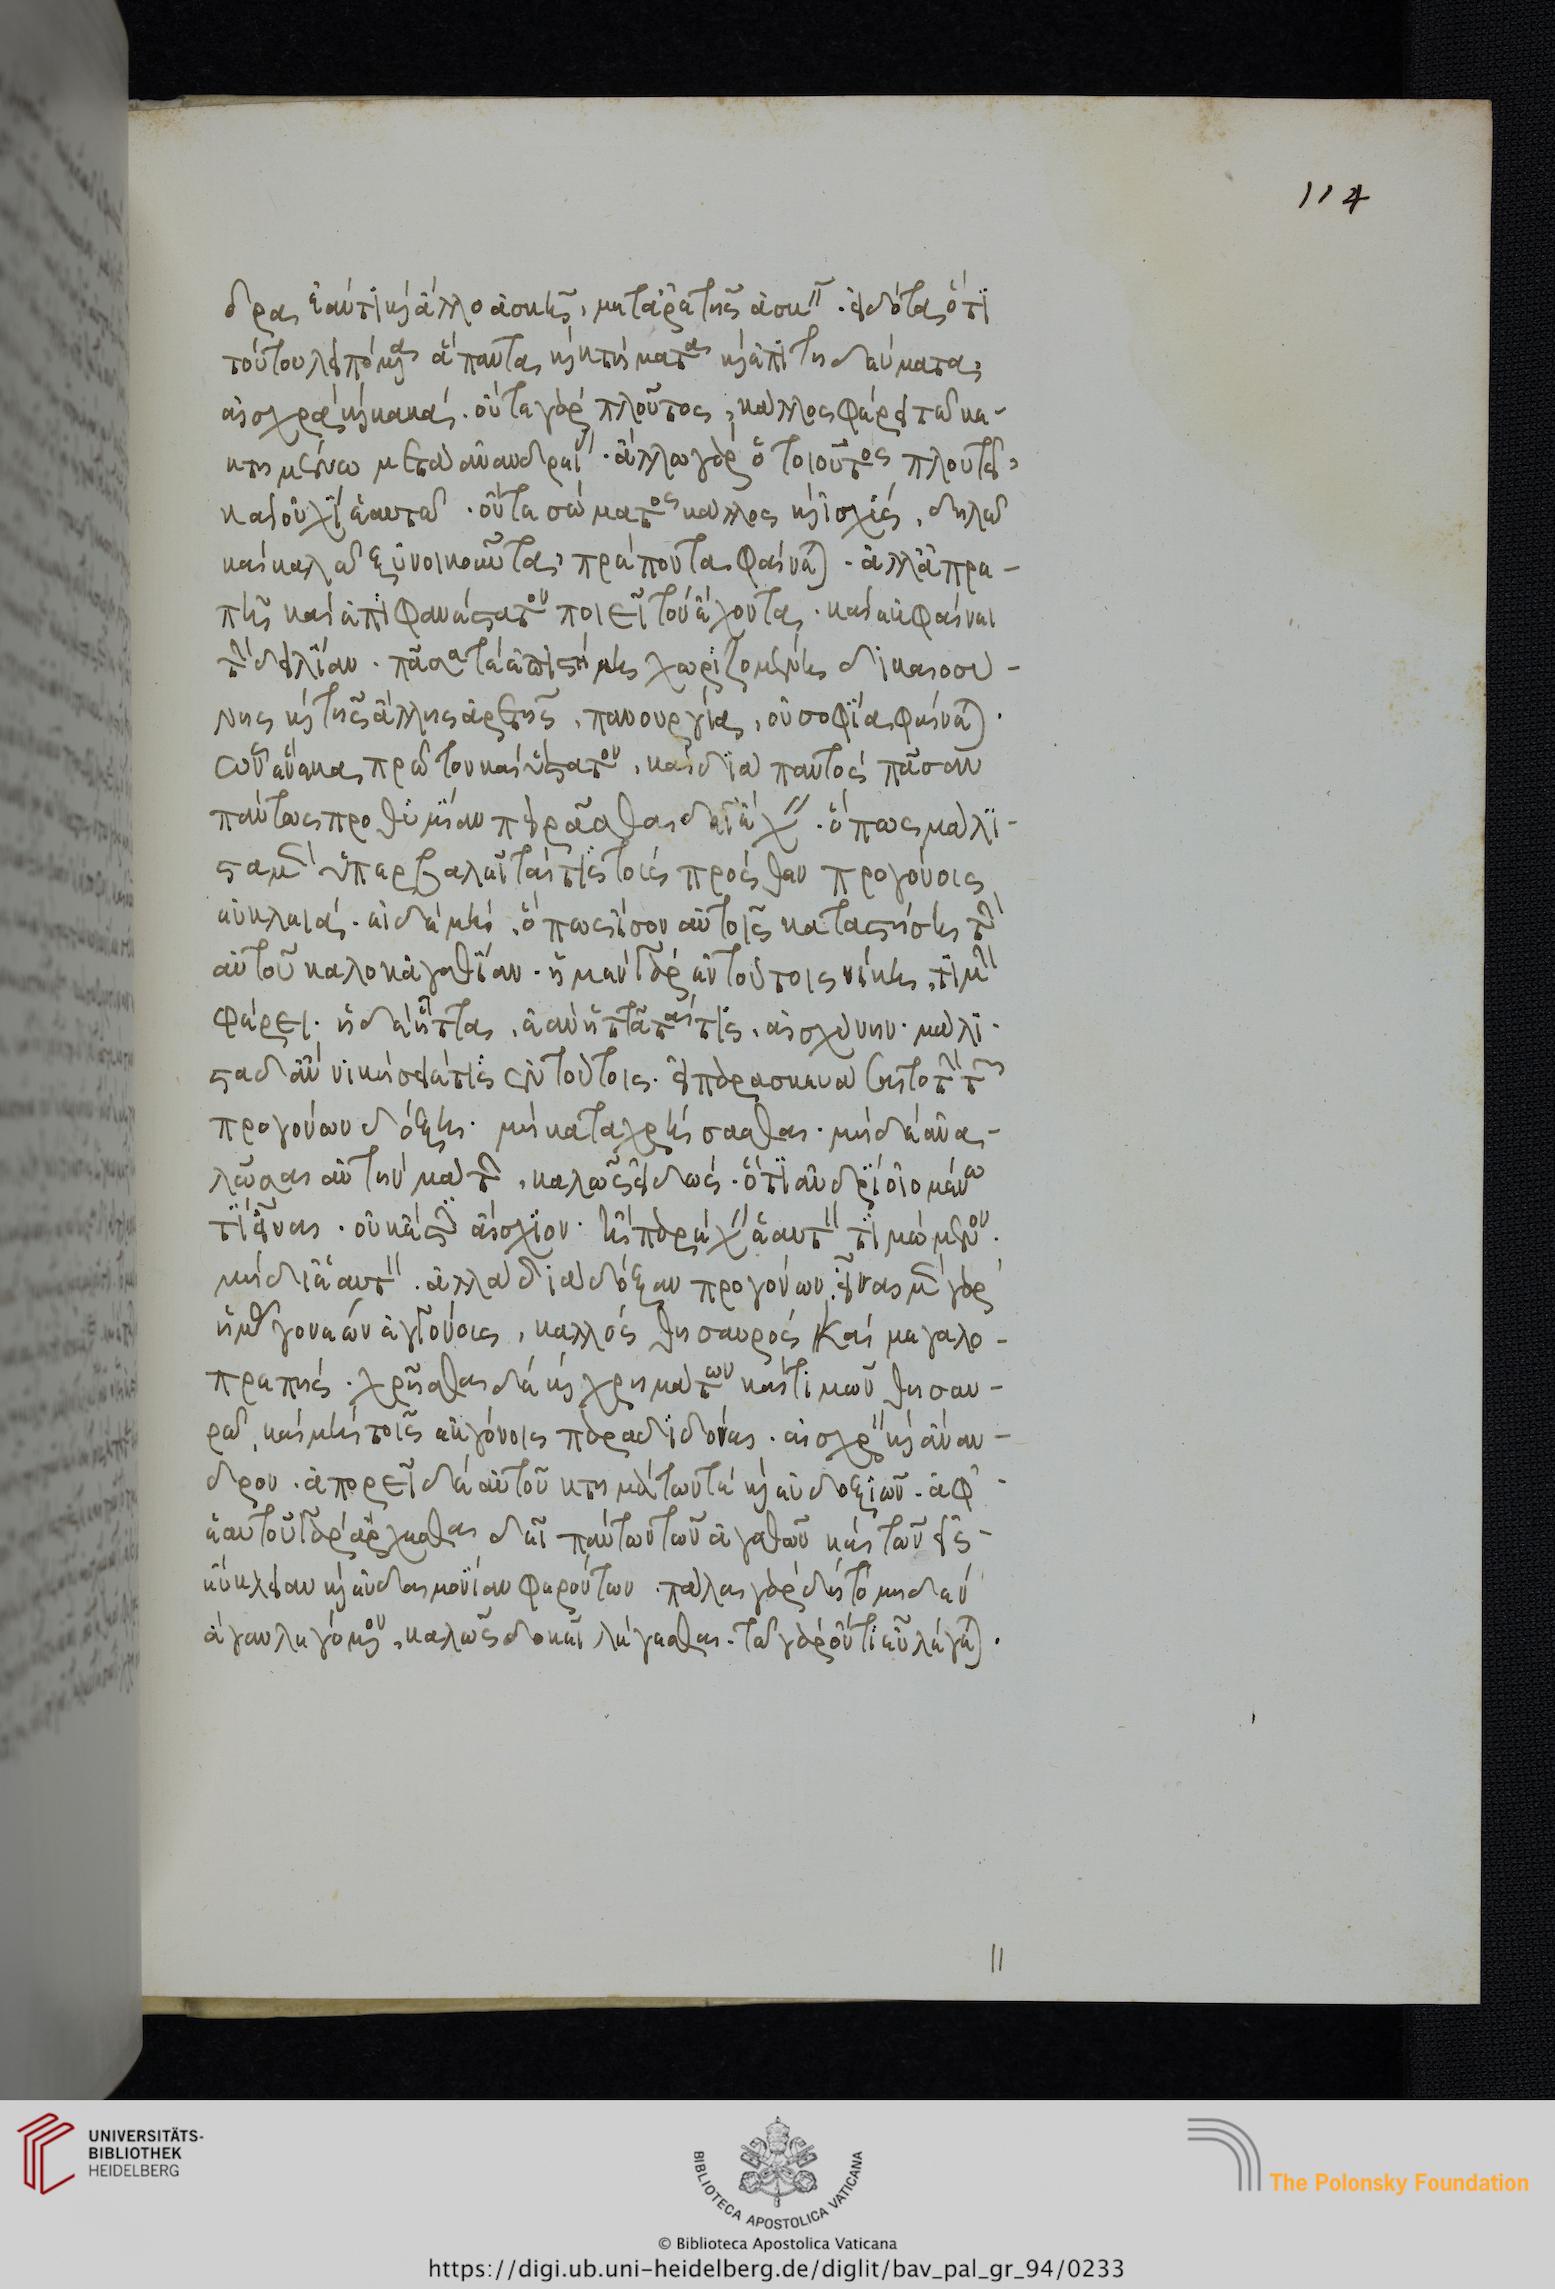 δρας ἐάν τι καὶ ἄλλο ἀσκῆς, μετ' ἀρετῆς ἀσκεῖν. εἰδότας ὅτι
τούτου λειπόμενα ἅπαντα καὶ κτήματα καὶ ἐπιτηδεύματα,
αἰσχρὰ καὶ κακά. οὔτε γὰρ πλοῦτος, κάλλος φέρει τῶ κε-
κτημένω μετὰ ἀνανδρίας. ἄλλω γὰρ ὁ τοιοῦτος πλουτεῖ,
καὶ οὐχὶ ἑαυτῶ. οὔτε σώματος κάλλος καὶ ἰσχύς, δειλῶ
καὶ καλῶ ξυνοικοῦντα, πρέποντα φαίνεται. ἀλλὰ πρε-
πῆς καὶ ἐπιφανέστατον ποιεῖ τὸν ἔχοντα. καὶ ἐκφαίνει
τὴν δειλίαν. πᾶσα τε ἐπιστήμης χωριζομένης δικαιοσύ-
νης καὶ τῆς ἄλλης ἀρετῆς, πανουργία, οὐ σοφία φαίνεται.
ὧν ἕνεκα πρῶτον καὶ ὕστατον, καὶ διὰ παντὸς πᾶσαν
πάντως προθυμίαν πειρᾶσθαι δεῖ ἔχειν. ὅπως μάλι-
στα μὲν ὑπερβαλεῖταί τις τοὺς πρόσθεν προγόνοις
εὐκλειά. εἰ δὲ μή, ὅπως ἴσον αὐτοῖς καταστήσης τὴν
αὐτοῦ καλοκἀγαθίαν. ἡ μὲν γὰρ ἐν τούτοις νίκη, τιμὴν
φέρει. ἡ δὲ ἧττα, ἐὰν ἡττᾶταί τις, αἰσχύνην. μάλι-
στα δ' ἂν νικήσειέ τις ἐν τούτοις. εἰ παρασκευάσαιτο τῆ τῶν
προγόνων δόξη. μὴ καταχρήσασθαι. μὴ δὲ ἀνα-
λῶσαι αὐτὴν μάτην, καλῶς εἰδώς. ὅτι ἀνδρὶ οἰομένω
τὶ εἶναι. οὐκ ἔστιν αἴσχιον. ἢ παρέχειν ἑαυτὸν τιμώμενον.
μὴ δι' ἑαυτὸν. ἀλλὰ διὰ δόξαν προγόνων. εἶναι μὲν γὰρ
ἡμῶν γονέων ἐγγόνοις, καλλὸς θησαυρός καὶ μεγαλο-
πρεπής. χρῆσθαι δὲ καὶ χρημάτων καὶ τιμῶν θησαυ-
ρῶ, καὶ μὴ τοῖς ἐκγόνοις παραδιδόναι. αἰσχρὸν καὶ ἄναν-
δρον. ἀπορεῖ δὲ αὐτοῦ κτημάτων τὲ καὶ εὐδοξιῶν. ἀφ'
ἑαυτοῦ γὰρ ἄρχεσθαι δεῖ πάντων τῶν ἀγαθῶν καὶ τῶν εἰς
εὔκλειαν καὶ εὐδαιμονίαν φερόντων. πάλαι γὰρ δὴ τὸ μηδὲν
ἄγαν λεγόμενον, καλῶς δοκεῖ λέγεσθαι. τῶ γὰρ ὄντι εὖ λέγεται.
114
UNIVERSITÄTS-
BIBLIOTHEK
HEIDELBERG
BIBLIOTECA APOSTOLICA VATICANA
© Biblioteca Apostolica Vaticana
The Polonsky Foundation
https://digi.ub.uni-heidelberg.de/diglit/bav_pal_gr_94/0233